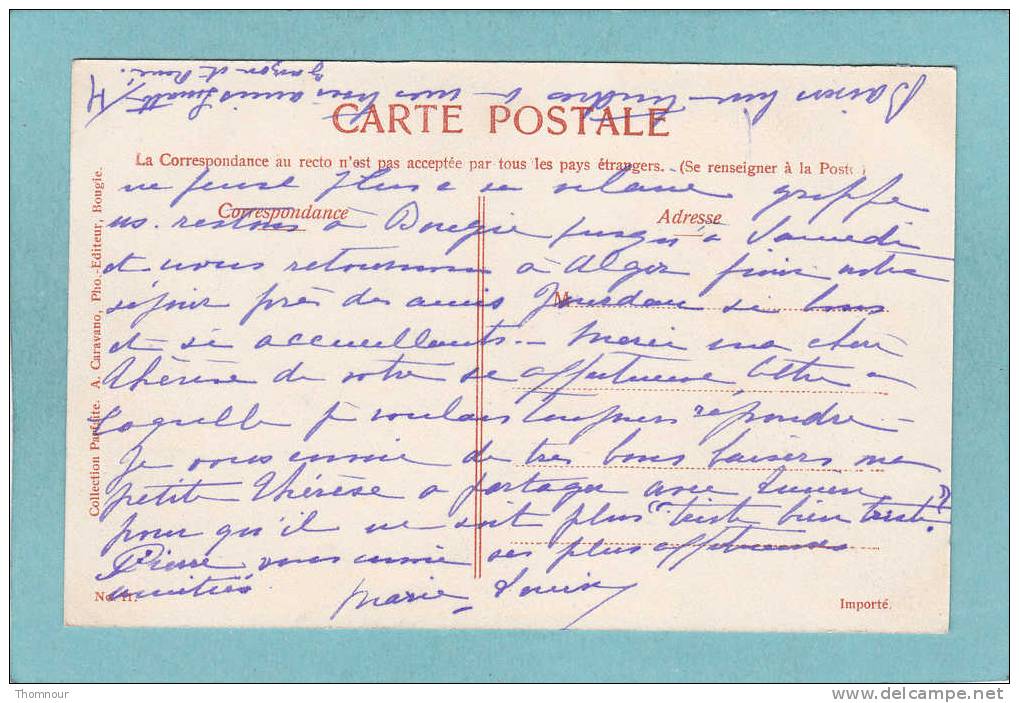 Baisers tendres à mes amis
CARTE POSTALE
La Correspondance au recto n'est pas acceptée par tous les pays étrangers. - (Se renseigner à la Poste)
ne pense plus à sa vilaine griffe
Correspondance
Adresse
ns. restons à Bougie jusqu'à Samedi
et nous retournons à Alger finir notre
M
séjour près des amis Jourdan si bons
et si accueillants - Merci ma chère
Thérèse de votre si affectueuse lettre à
laquelle je voulais toujours répondre -
Je vous envoie de très bons baisers ma
petite Thérèse à partager avec Lucien
pour qu'il ne soit plus "triste bien triste"!
Pierre vous envoie ses plus affectueuses
amitiés
Marie-Louise
Collection Parfaite. A. Caravano, Pho.-Editeur, Bougie.
No. 11.
Importé.
Thomnour
delcampe.net